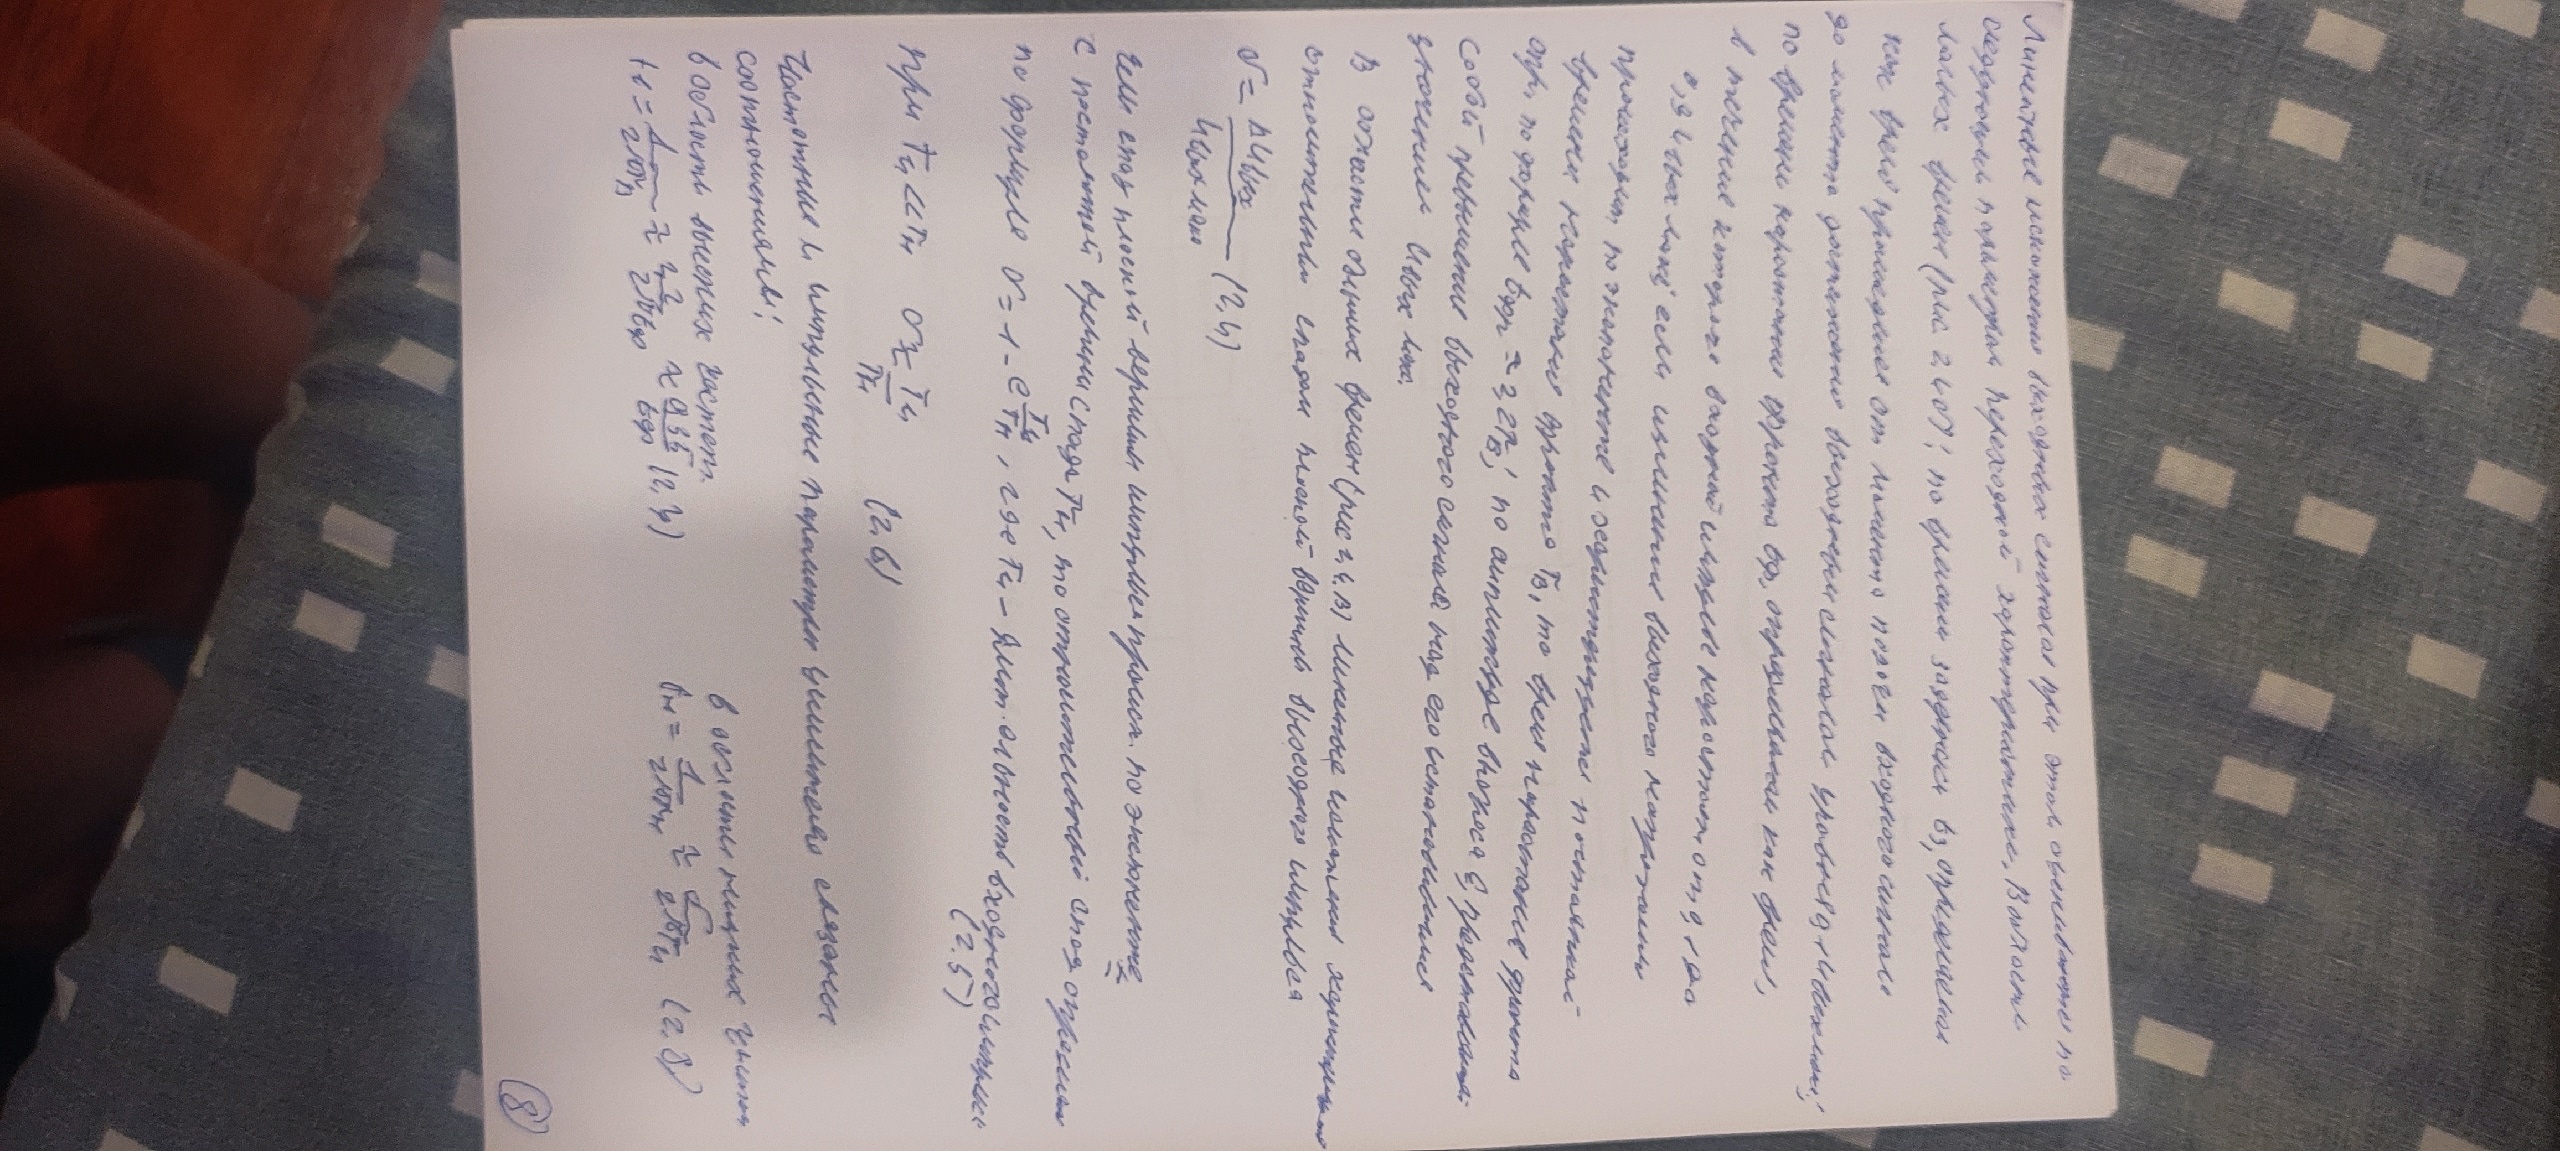 Линейные искажения выходных сигналов при этом оцениваются по
следующим параметрам переходной характеристике. В области
малых времен (рис 2.4б): по времени задержки tз, определяемом
как время прошедшее от момента подачи входного сигнала
до момента достижения выходным сигналом уровня 0,1 Uвых макс;
по времени нарастания фронта tфр, определяемым как время,
в течение которого входной импульс нарастает от 0,1 до
0,9 Uвых макс; если изменение выходного напряжения
происходит по экспоненте и характеризуется постоянной
времени нарастания фронта τв, то время нарастания фронта
опр. по формуле tфр ≈ 2,2τв; по амплитуде выброса представляющей
собой превышение выходного сигнала над его установившимся
значением Uвых макс.
В области больших времен (рис 2.4, в) линейные искажения
относительным спадом плоской вершины выходного импульса
δ = ΔUвых / Uвых макс (2.4)
Если спад плоской вершины импульса происх. по экспоненте
с постоянной времени спада τн, то относительный спад
по формуле δ = 1 - e Tи/τн, где Tи - длительность входного импульса
(2.5)
при Tи << τн δ ≈ Tи/τн (2.6)
Частотные и импульсные параметры усилителя связаны
соотношениями:
в области высоких частот
fв = 1/2πτв ≈ 2,2/2πtфр ≈ 0,35/tфр (2.7)
в области нижних частот
fн = 1/2πτн ≈ δ/2πTи (2.8)
8